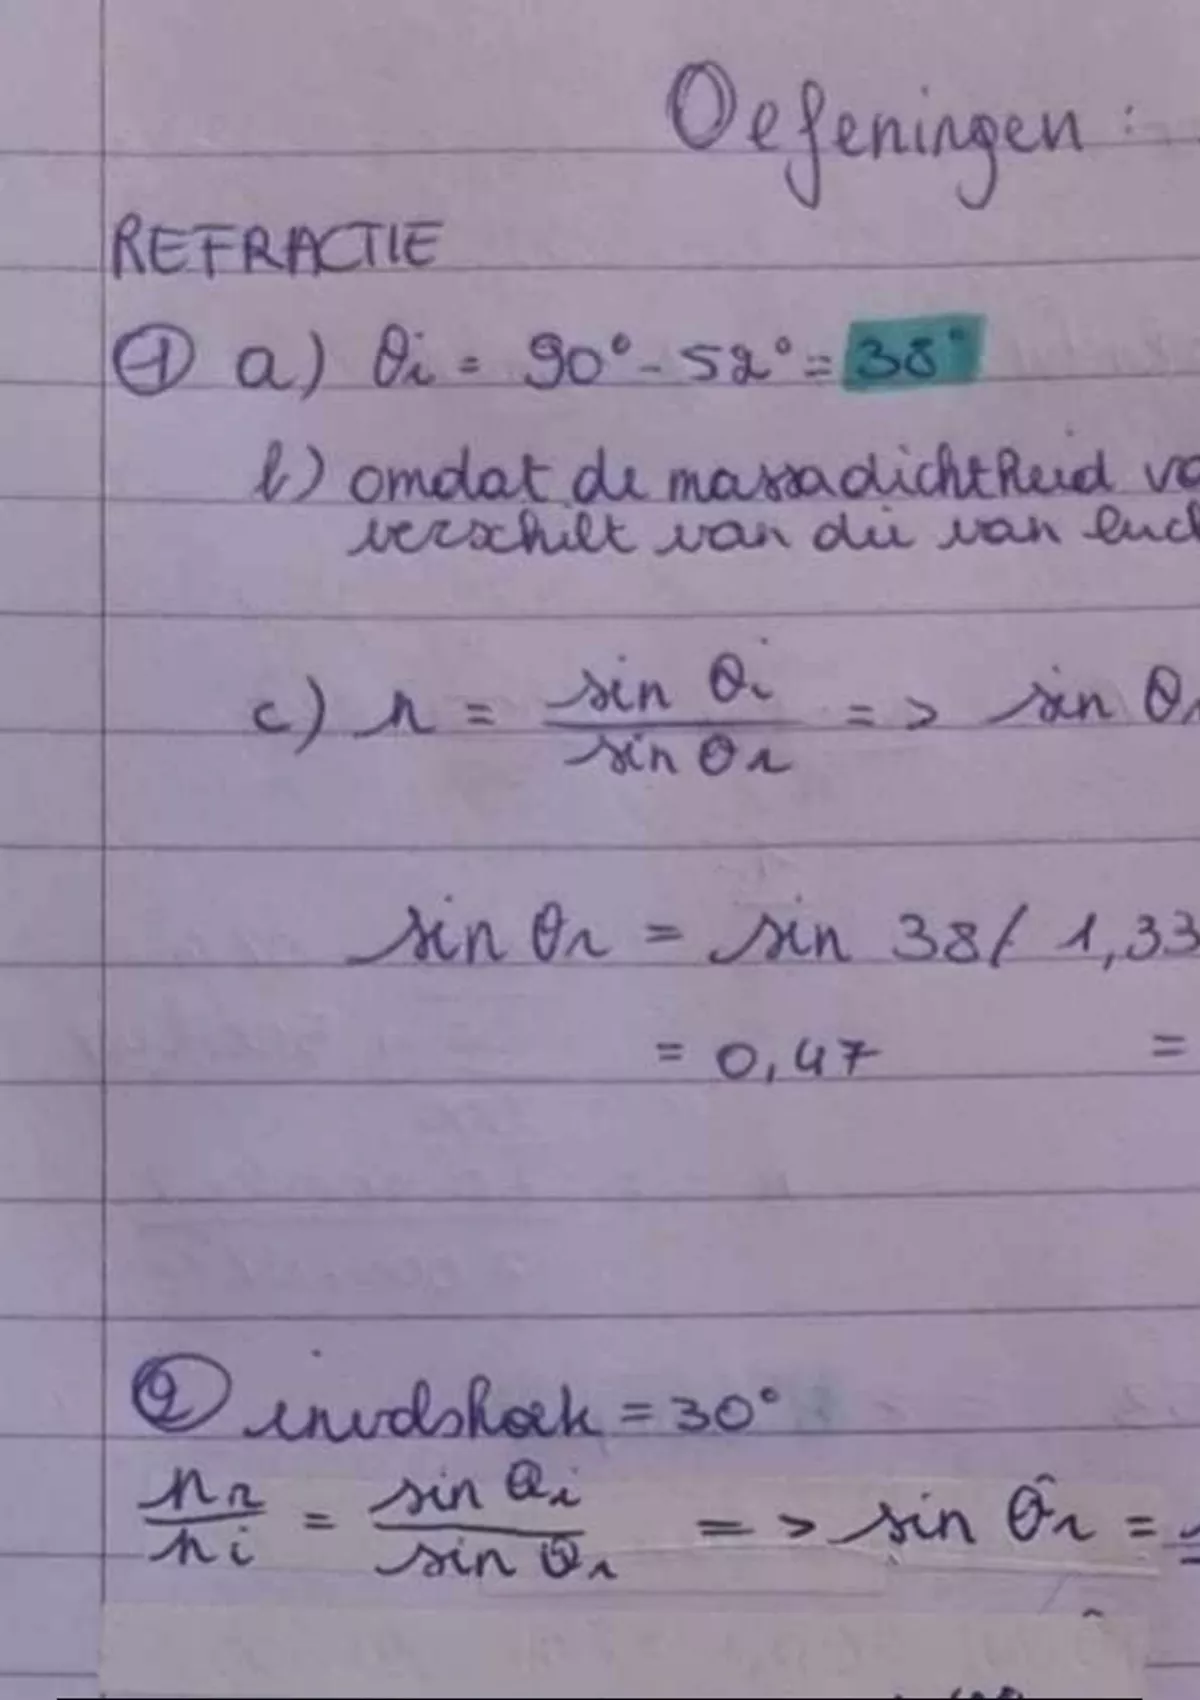 Oefeningen :
REFRACTIE
① a) θi = 90° - 52° = 38°
b) omdat de massadichtheid
verschilt van die van
c) n = sin θi / sin θr => sin θ
sin θr = sin 38 / 1,33
= 0,47 =
② invalshoek = 30°
nr / ni = sin θi / sin θr => sin θr =